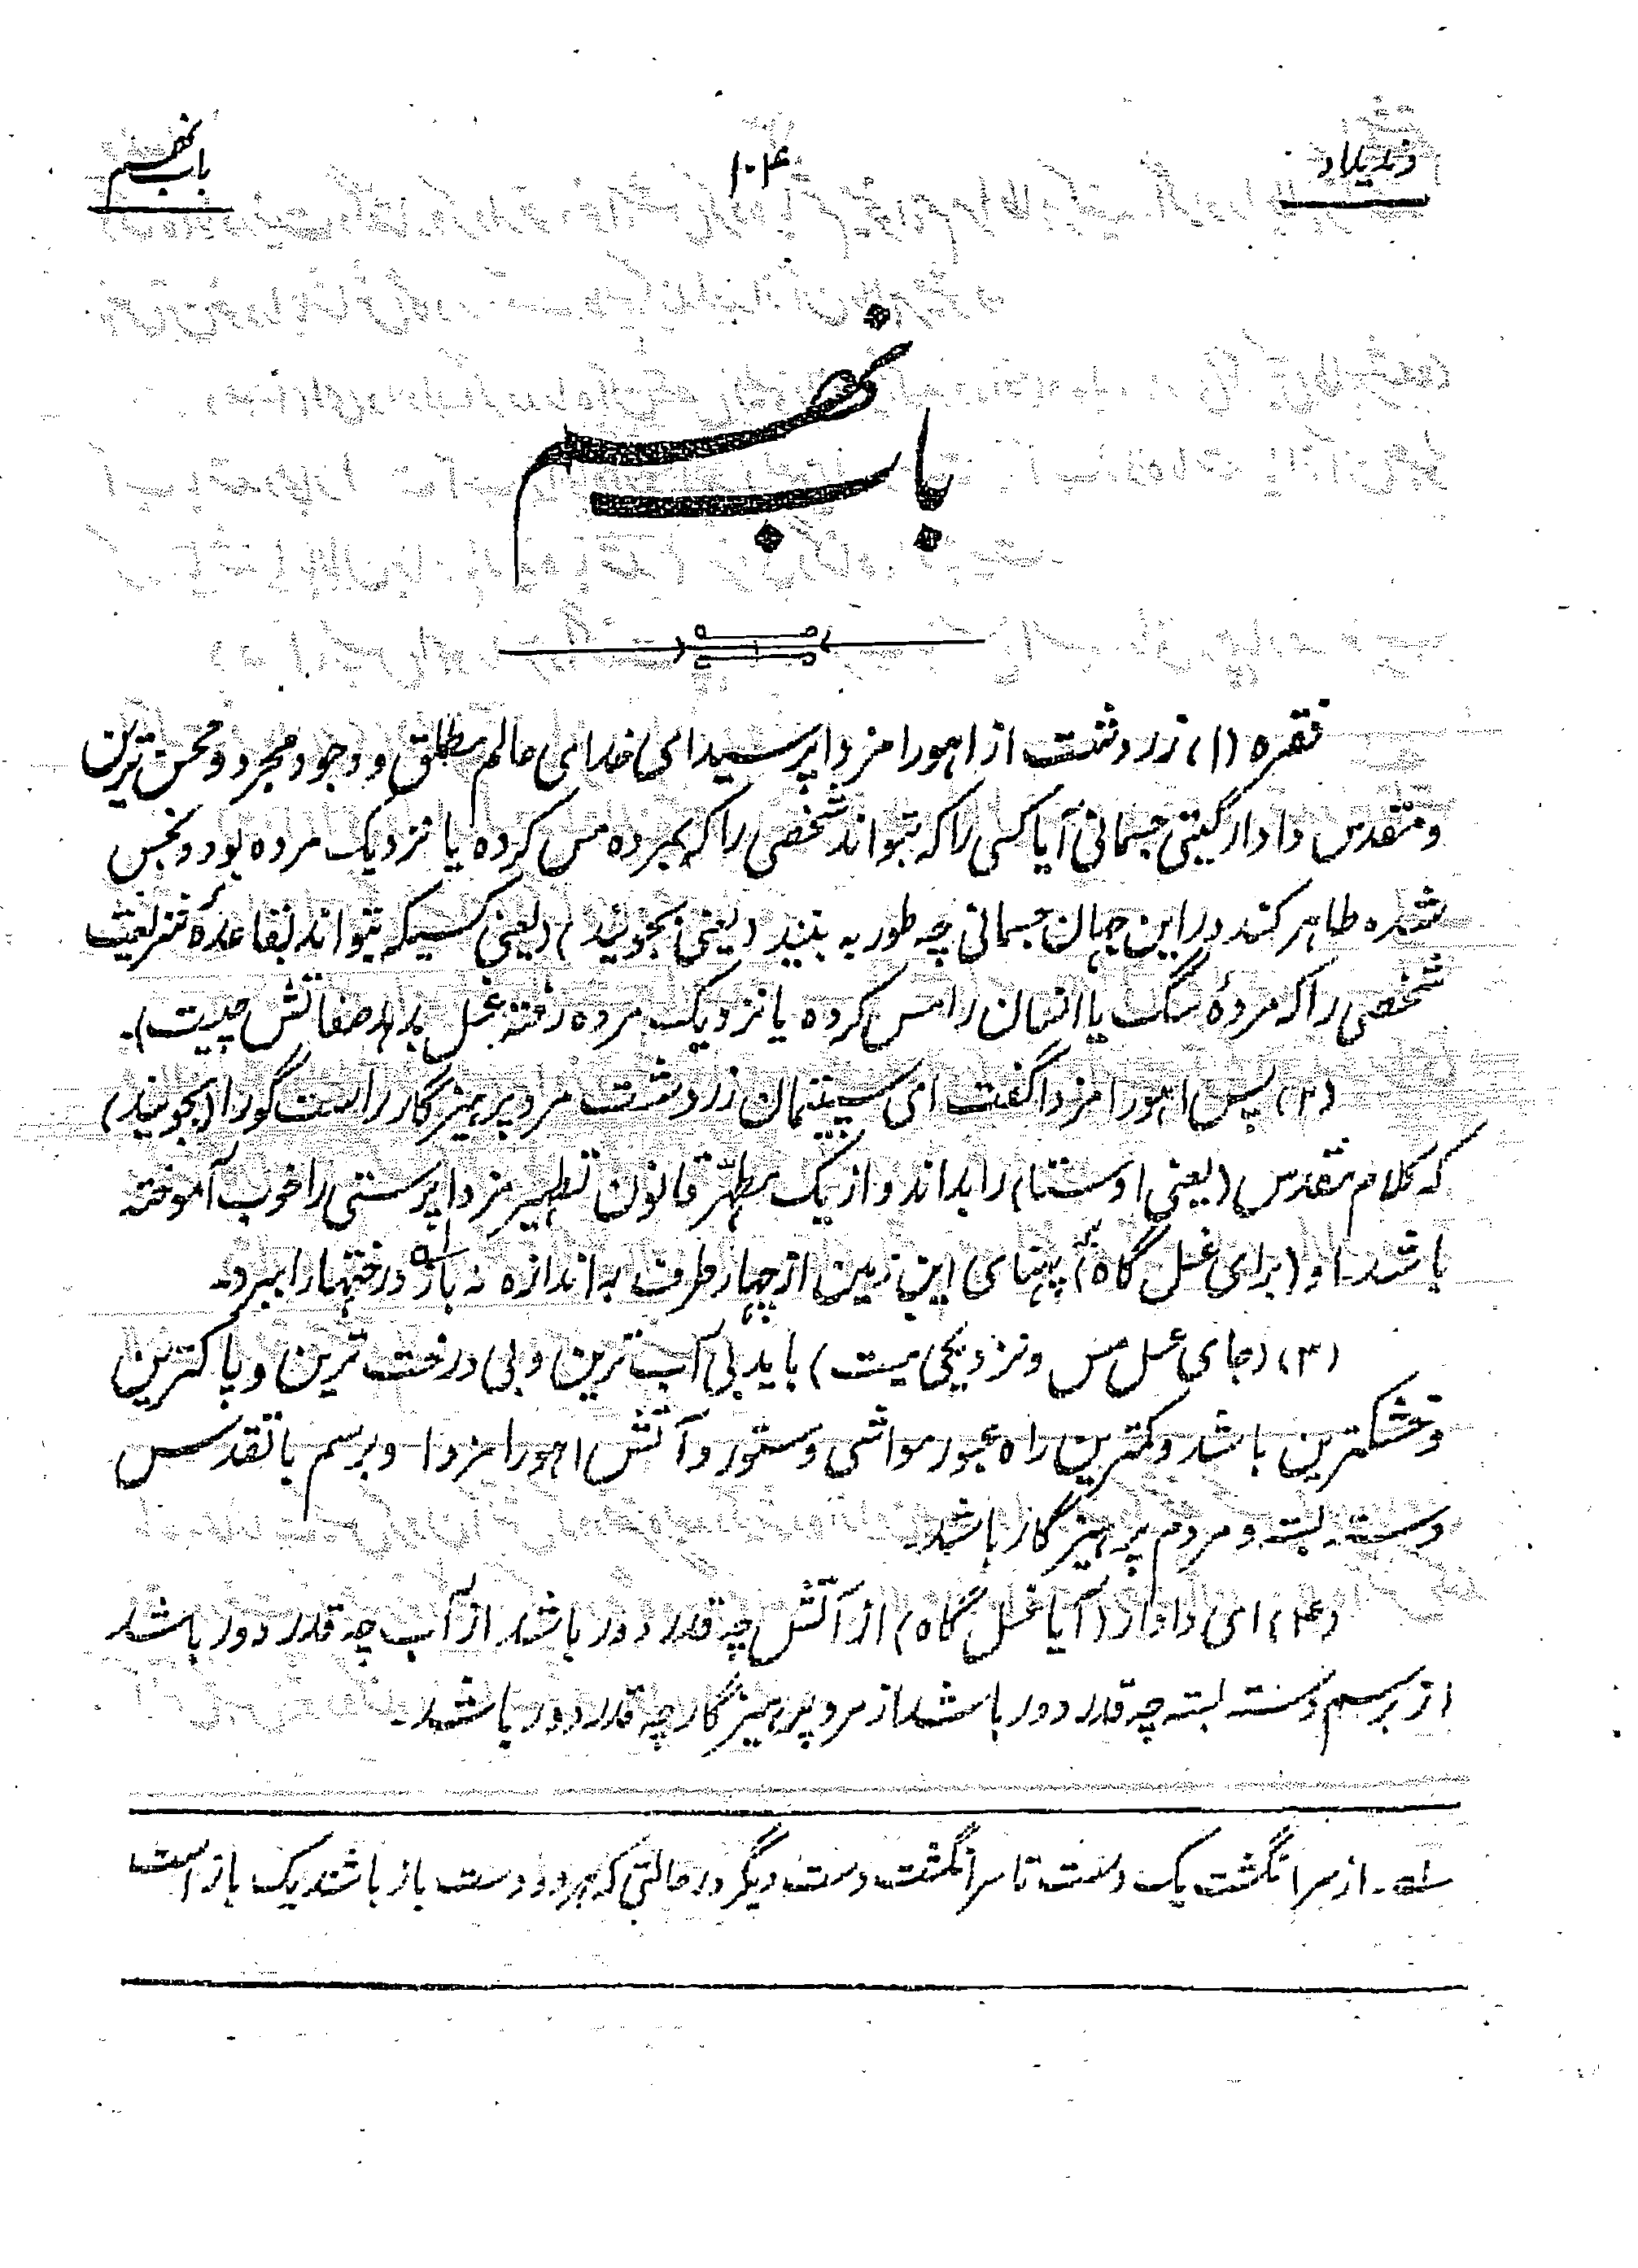 وندیداد ۱۰۴ باب نهم
باب نهم
فقره (۱) زردشت از اهورا مزدا پرسید ای خدای عالم مطلق و وجود مجرد و محسن ترین
و مقدس دادار گیتی جسمانی آیا کسی را که بتواند شخصی را که بمرده مس کرده یا نزدیک مرده بود و نجس
شده طاهر کند در این جهان جسمانی چه طور به بینید (یعنی بجوئید) (یعنی کسیکه بتواند بقاعدهٔ شریعت
شخصی را که مردهٔ سگ یا انسان را مس کرده یا نزدیک مرده رفته غسل بدهد صفاتش چیست).
(۲) پس اهورا مزدا گفت ای سپنتمان زردشت مرد پرهیزگار راست گو را (بجوئید)
که کلام مقدس (یعنی اوستا) را بداند و از یک مطهّر قانون تطهیر مزدا پرستی را خوب آموخته
باشد. او (برای غسل گاه) پهنای این زمین از چهار طرف به اندازه نه باز له درختها را ببرد.
(۳) (جای غسل مس و نزدیکی میت) باید بی آب ترین و بی درخت ترین و پاکترین
و خشکترین باشد و کمترین راه عبور مواشی و ستور و آتش اهورا مزدا و برسم با تقدس
دسته بسته و مردم پرهیزگار باشد.
(۴) ای دادار (آیا غسل گاه) از آتش چه قدر دور باشد از آب چه قدر دور باشد
از برسم دسته بسته چه قدر دور باشد از مرد پرهیزگار چه قدر دور باشد.
له - از سر انگشت یک دست تا سر انگشت دست دیگر در حالتی که هر دو دست باز باشند یک باز است